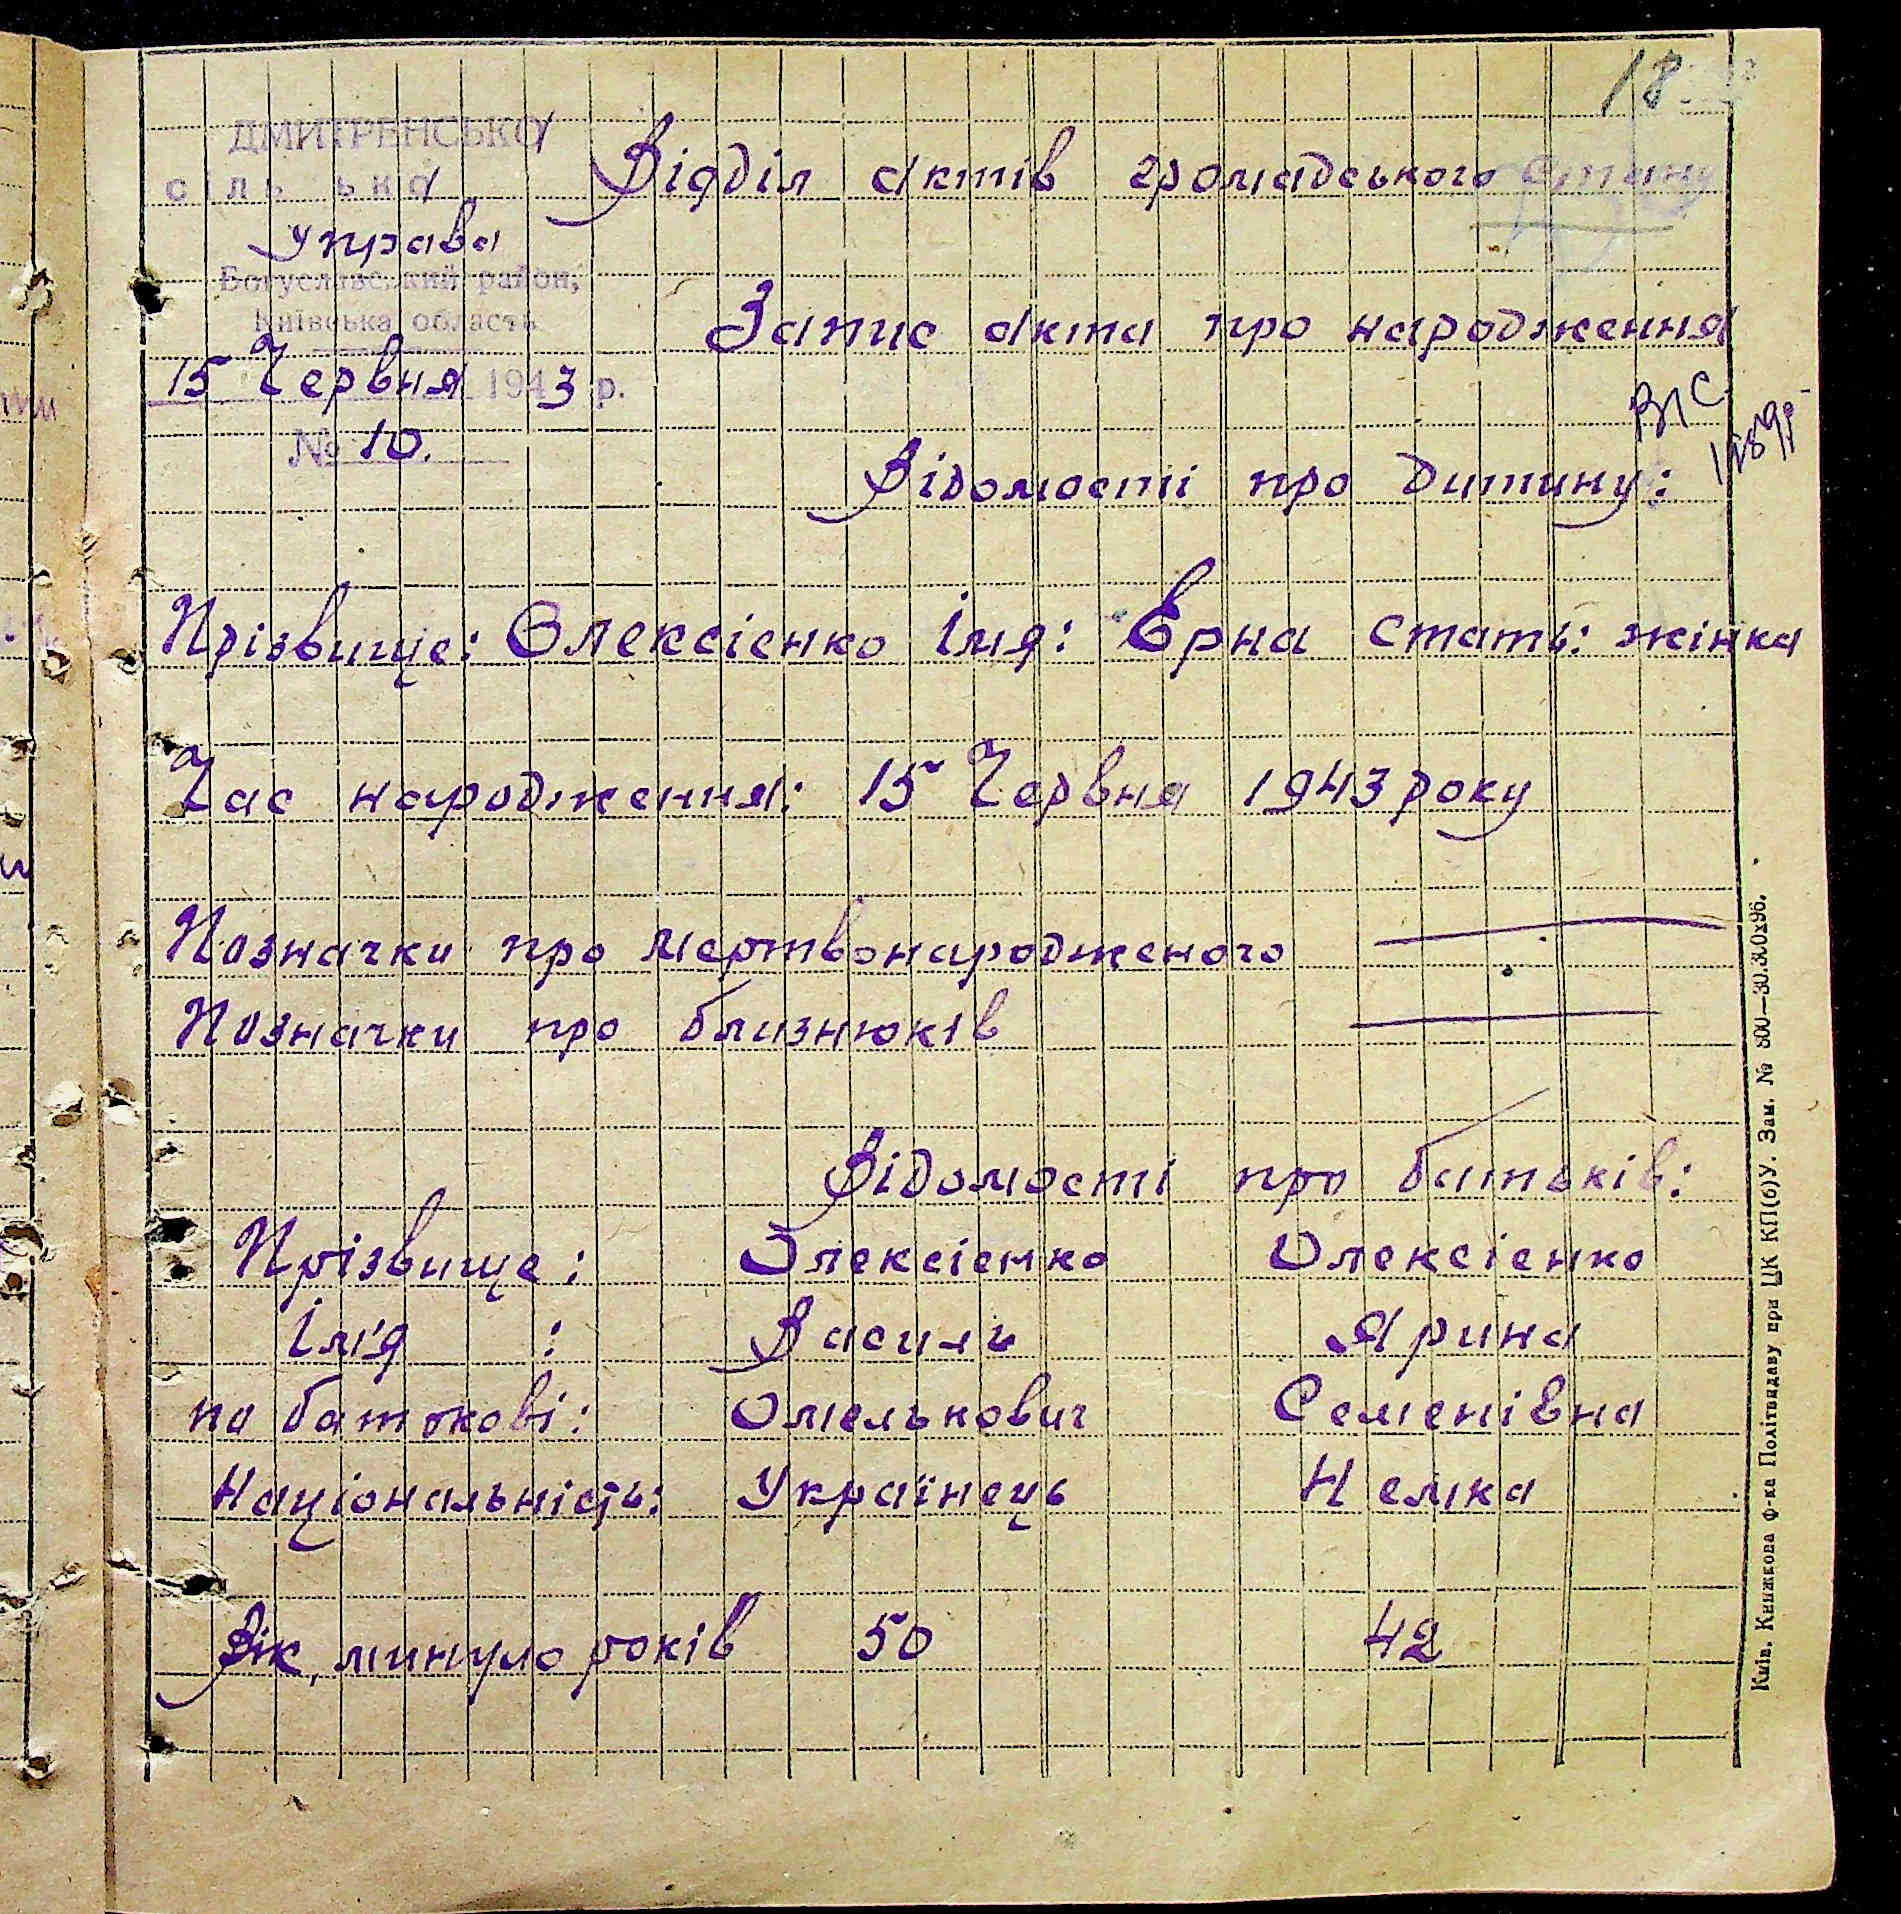 18
ДМИТРЕНСЬКА
сільська
Управа
Богуславський район,
Київська область
15 Червня 1943 р.
№ 10.
Відділ актів громадського стану
Запис акта про народження
Відомостіі про дитину:
Прізвище: Олексієнко Імя: Ерна Стать: жінка
Час народження: 15 Червня 1943 року
Позначки про мертвонародженого
Позначки про близнюків
Відомості про батьків:
Прізвище: Олексієнко Олексієнко
Ім'я : Василь Ярина
по батькові: Омелькович Семенівна
Національність: Українець Немка
Вік, минуло років 50 42
Київ. Книжкова ф-ка Політвидаву при ЦК КП(б)У. Зам. № 800—30.30.0х96.